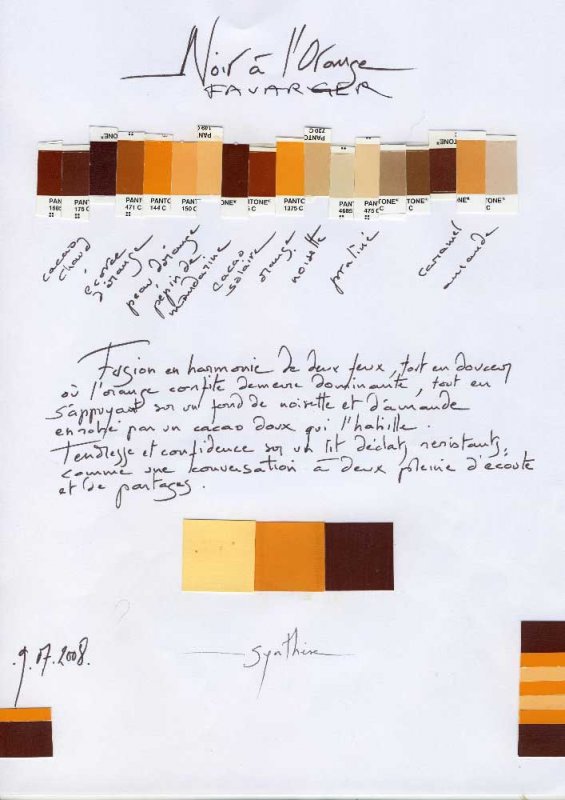 Noir à l'Orange
FAVARGER
PANT
175 C
PANT
471 C
PANT
144 C
PANT
150 C
TONE®
PANT
1375 C
720 C
PANT
4685
PANT
475 C
TONE®
TONE®
cacao
chaud
écorce
d'orange
peau d'orange
pépin de
mandarine
cacao
solaire
orange
noisette
praliné
caramel
amande
Fusion en harmonie de deux feux, tout en douceur
où l'orange confite demeure dominante, tout en
s'appuyant sur un fond de noisette et d'amande
enrobé par un cacao doux qui l'habille.
Tendresse et confidence sur un lit d'éclats resistants,
comme une conversation à deux pleine d'écoute
et de partages.
synthèse
.9.07.2008.